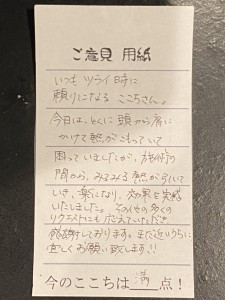 ご意見 用紙
いつも ツライ時に
頼りになる ここちさん。
今日は、とくに 頭から肩に
かけて熱がこもっていて
困っていましたが、施術の
間から、みるみる熱が引いて
いき、楽になり、効果を実感
いたしました。その他の多くの
リクエストにも応えていただき
感謝しております。また近いうちに
宜しくお願い致します!!
今のここちは 満 点!